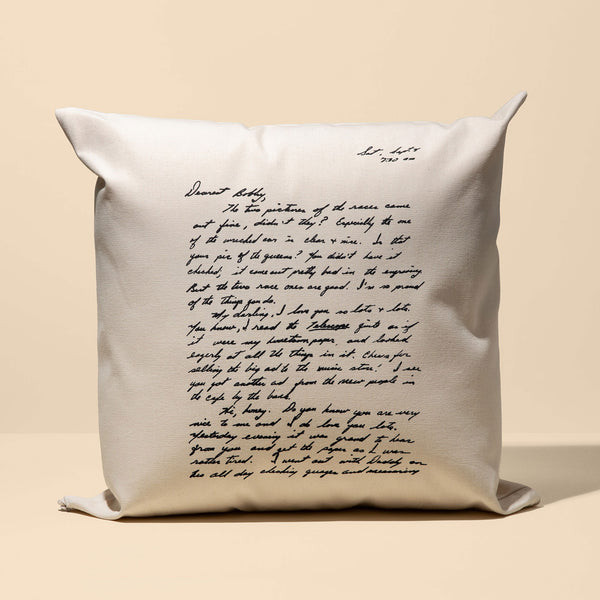 Sat, Sept. 4
7:30 am
Dearest Bobby,
The two pictures of the races came
out fine, didn't they? Especially the one
of the wrecked car is clear & nice. Is that
your pic of the queens? You didn't have it
checked, it came out pretty bad in the engraving.
But the two race ones are good. I'm so proud
of the things you do.
My darling, I love you so lots & lots.
You know, I read the Telescope just as if
it were my hometown paper, and looked
eagerly at all the things in it. Cheers for
selling the big ad to the music store! I see
you got another ad from the new people in
the cafe by the bank.
Hi, honey. Do you know you are very
nice to me and I do love you lots.
Yesterday evening it was grand to hear
from you and get the paper as I was
rather tired. I went out with Daddy on
his all day checking gauges and measuring